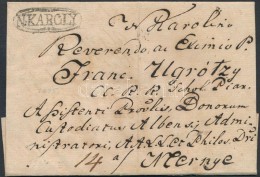 N.KAROLY
N Karolin
Reverendo, ac Eximio P.
Franc. Ugrótzy
Cl. R. R. Schol. Piar.
Assistenti Provlis, Donorum
Custodiatus Albensis, Admi-
nistratori, A.A. L.L. et Philos. Dri
14 a/ Mernye